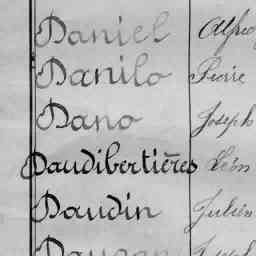 Daniel Alfred
Danilo Pierre
Dano Joseph
Daudibertières Léon
Daudin Julien